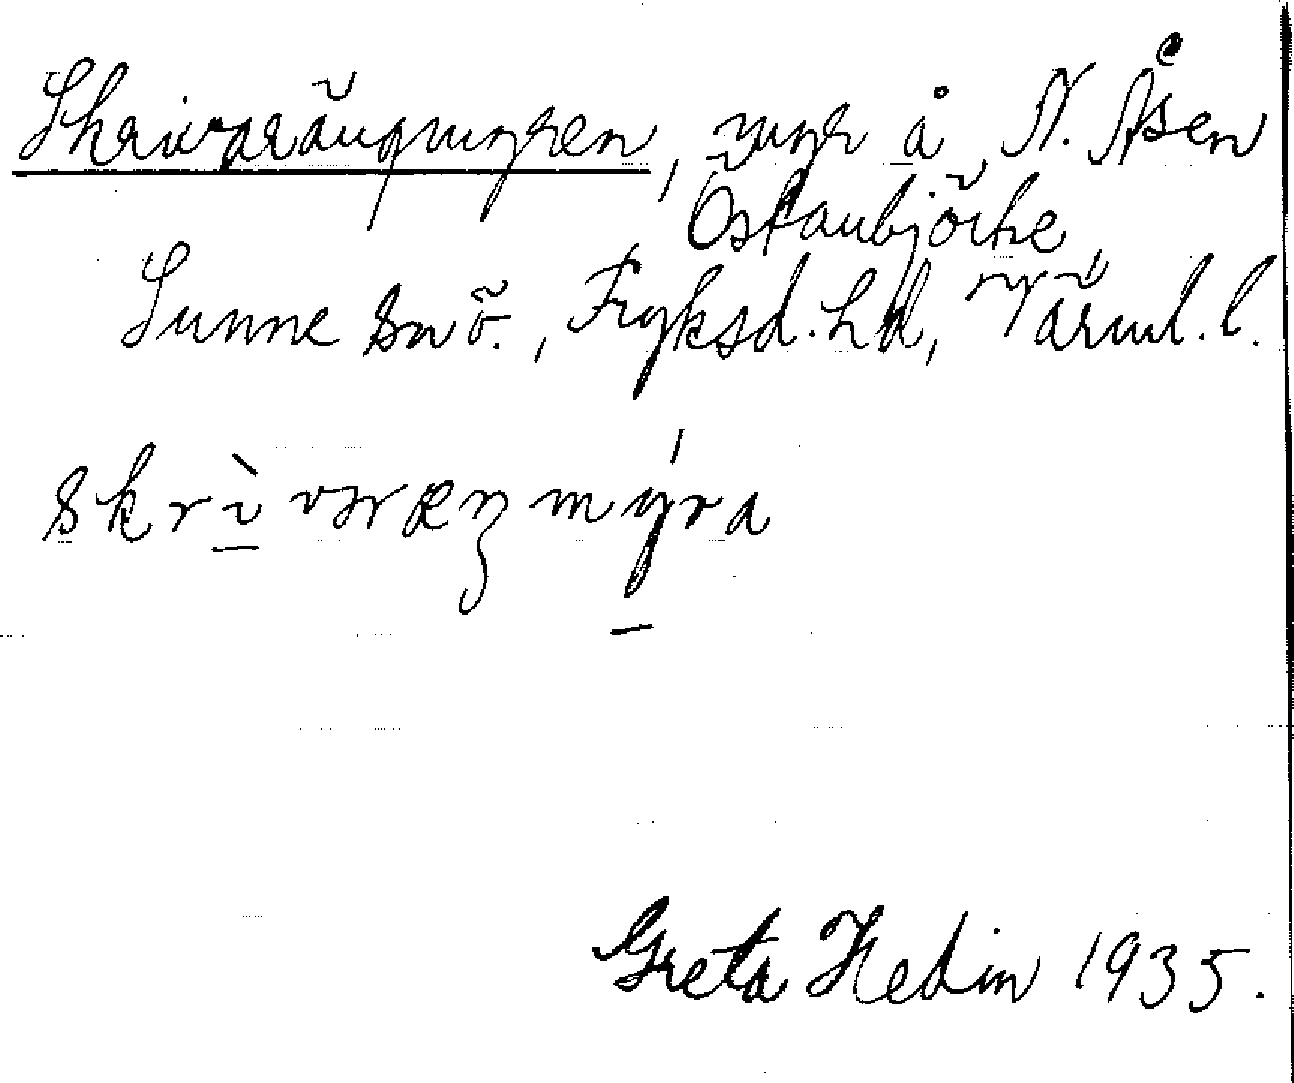 Skrivarängmyren, myr å N. Åsen
Östanbjörke
Sunne sn ö., Fryksd. hd, Värml. l.
skrì vər æŋ mýra
Greta Hedin 1935.